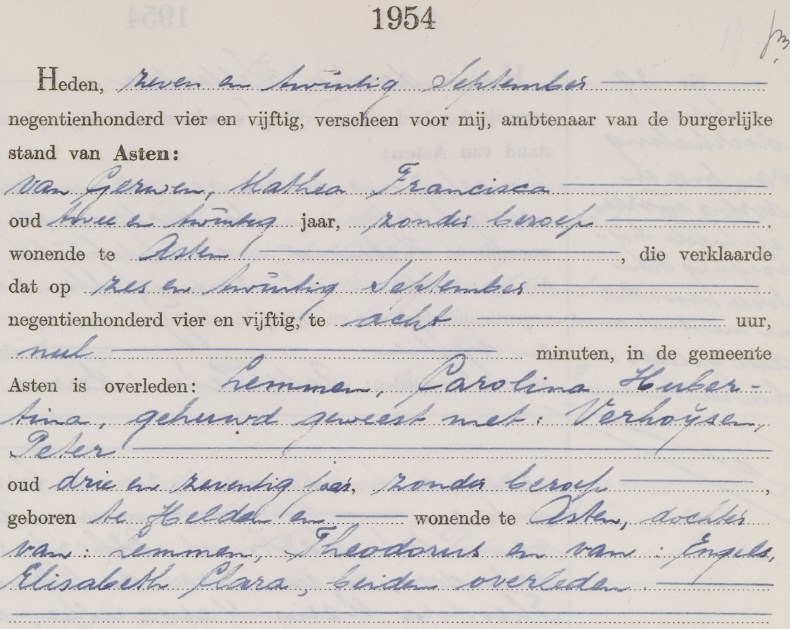 1954
Heden, zeven en twintig September
negentienhonderd vier en vijftig, verscheen voor mij, ambtenaar van de burgerlijke
stand van Asten:
van Gerwen, Mathea Francisca
oud twee en twintig jaar, zonder beroep,
wonende te Asten, die verklaarde
dat op zes en twintig September
negentienhonderd vier en vijftig, te acht uur,
nul minuten, in de gemeente
Asten is overleden: Lemmen, Carolina Huber-
tina, gehuwd geweest met: Verhoijsen,
Peter
oud drie en zeventig jaar, zonder beroep,
geboren te Helden en wonende te Asten, dochter
van: Lemmen, Theodorus en van: Engels,
Elisabeth Clara, beiden overleden.